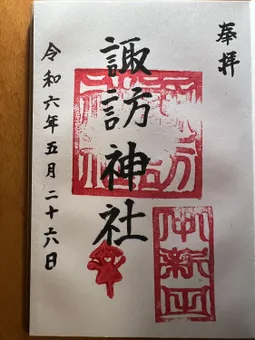 奉拝
諏訪神社
令和六年五月二十六日